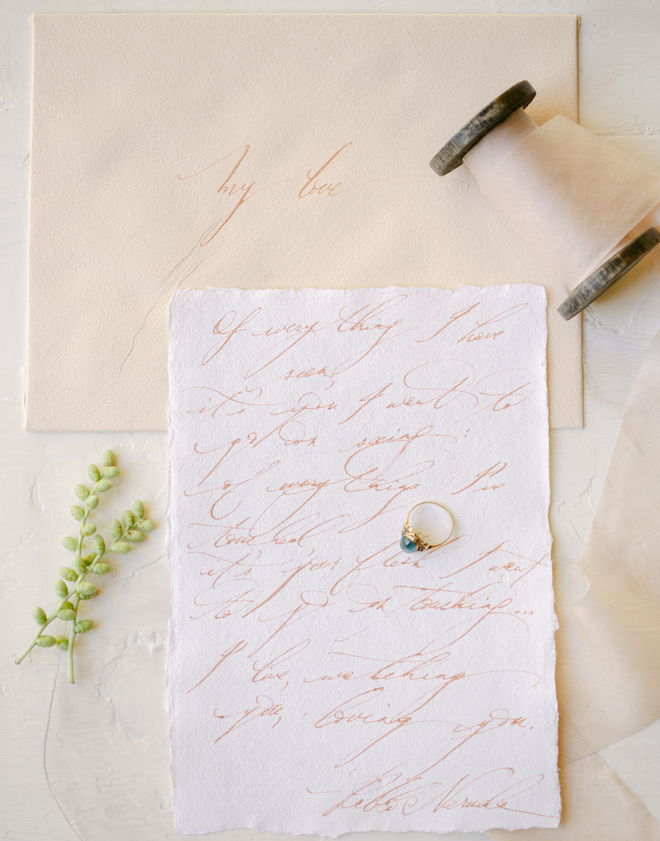 my love
Of everything I have
seen,
it's you I want to
go on seeing:
of everything I've
touched,
it's your flesh I want
to go on touching...
I live, watching
you, loving you.
Pablo Neruda